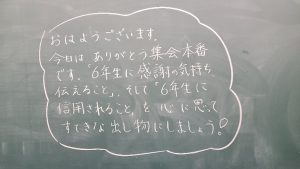 おはようございます。
今日は ありがとう集会本番
です。“6年生に感謝の気持ち
伝えること”、そして“6年生に
信用されること”を心に思って
すてきな出し物にしましょう!